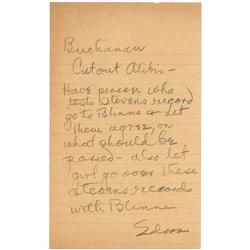 Buchanan
Cut out Alibis –
Have person who
tests Stevens record
go to Blinne & let
them agree, on
what should be
passed – also let
girl go over these
Stevens records
with Blinne
Edison